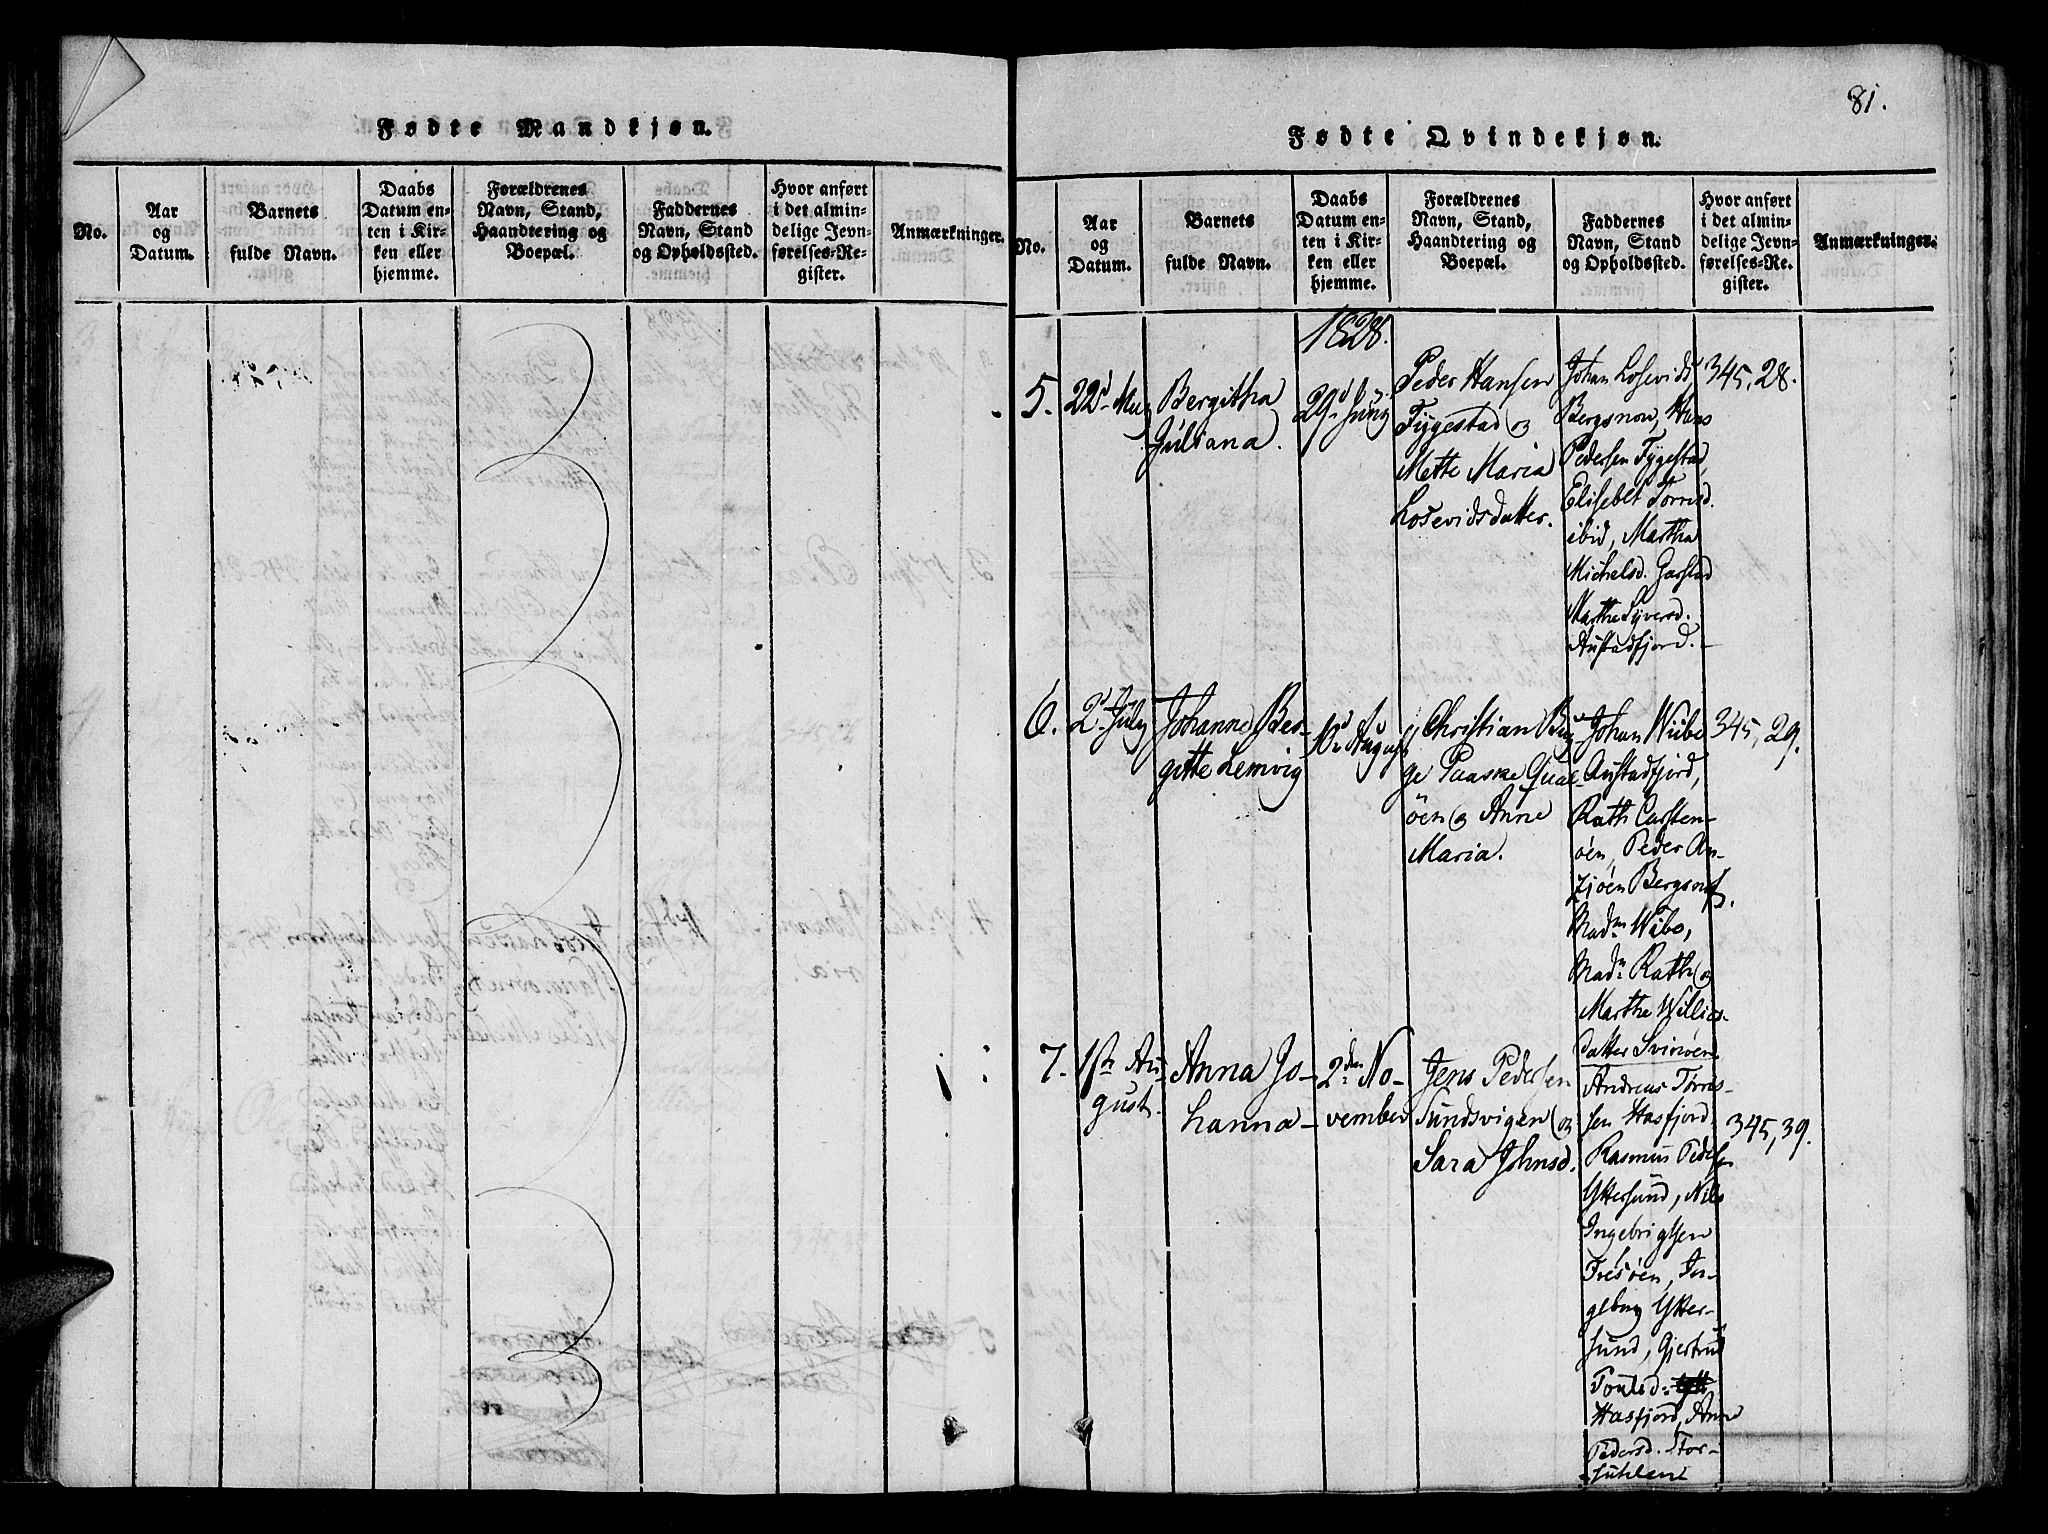 Fødte Mandkjøn.
No.
Aar
og
Datum.
Barnets
fulde Navn.
Daabs
Datum en-
ten i Kir-
ken eller
hjemme.
Forældrenes
Navn, Stand,
Haandtering og
Boepæl.
Faddernes
Navn, Stand
og Opholdssted.
Hvor anført
i det almin-
delige Jevn-
førelses-Re-
gister.
Anmærkninger.
81.
Fødte Qvindekjøn.
No.
Aar
og
Datum.
Barnets
fulde Navn.
Daabs
Datum en-
ten i Kir-
ken eller
hjemme.
Forældrenes
Navn, Stand,
Haandtering og
Boepæl.
Faddernes
Navn, Stand
og Opholdssted.
Hvor anført
i det almin-
delige Jevn-
førelses-Re-
gister.
Anmærkninger.
1828.
5.
22d
Bergitha
Juliana.
29d Juny
Peder Hansen
Tygestad og
Mette Maria
Losevidsdatter.
Johan Losevids
Bergsnov, Hans
Pedersen Tygestad
Elisebet Torrisd.
ibid, Martha
Michelsd. Garstad
Marthe Syversd.
Austadfjord.
345, 28.
6.
2d July
Johanne Ber-
gitte Lemvig
10d August
Christian
ge Paaske
öen og Anne
Maria.
Johan Wiibe
Austadfjord,
Rath Carsten-
öen, Peder
Madm Wibe,
Madm Rath og
Marthe Willies-
datter Svinöen
345, 29.
7.
1ste Au-
gust.
Anna Jo-
hanna
2den No-
vember
Jens Pedersen
Sundsvigen og
Sara Johnsd.
Andreas Torris-
sen Hasfjord,
Rasmus Peders
Yttersund, Nils
Ingebrigtsen
Tresöen, In-
geborg Ytter-
sund, Gjertrud
Poulsd.
Hasfjord, Anne
Pedersd. Stor-
345, 39.